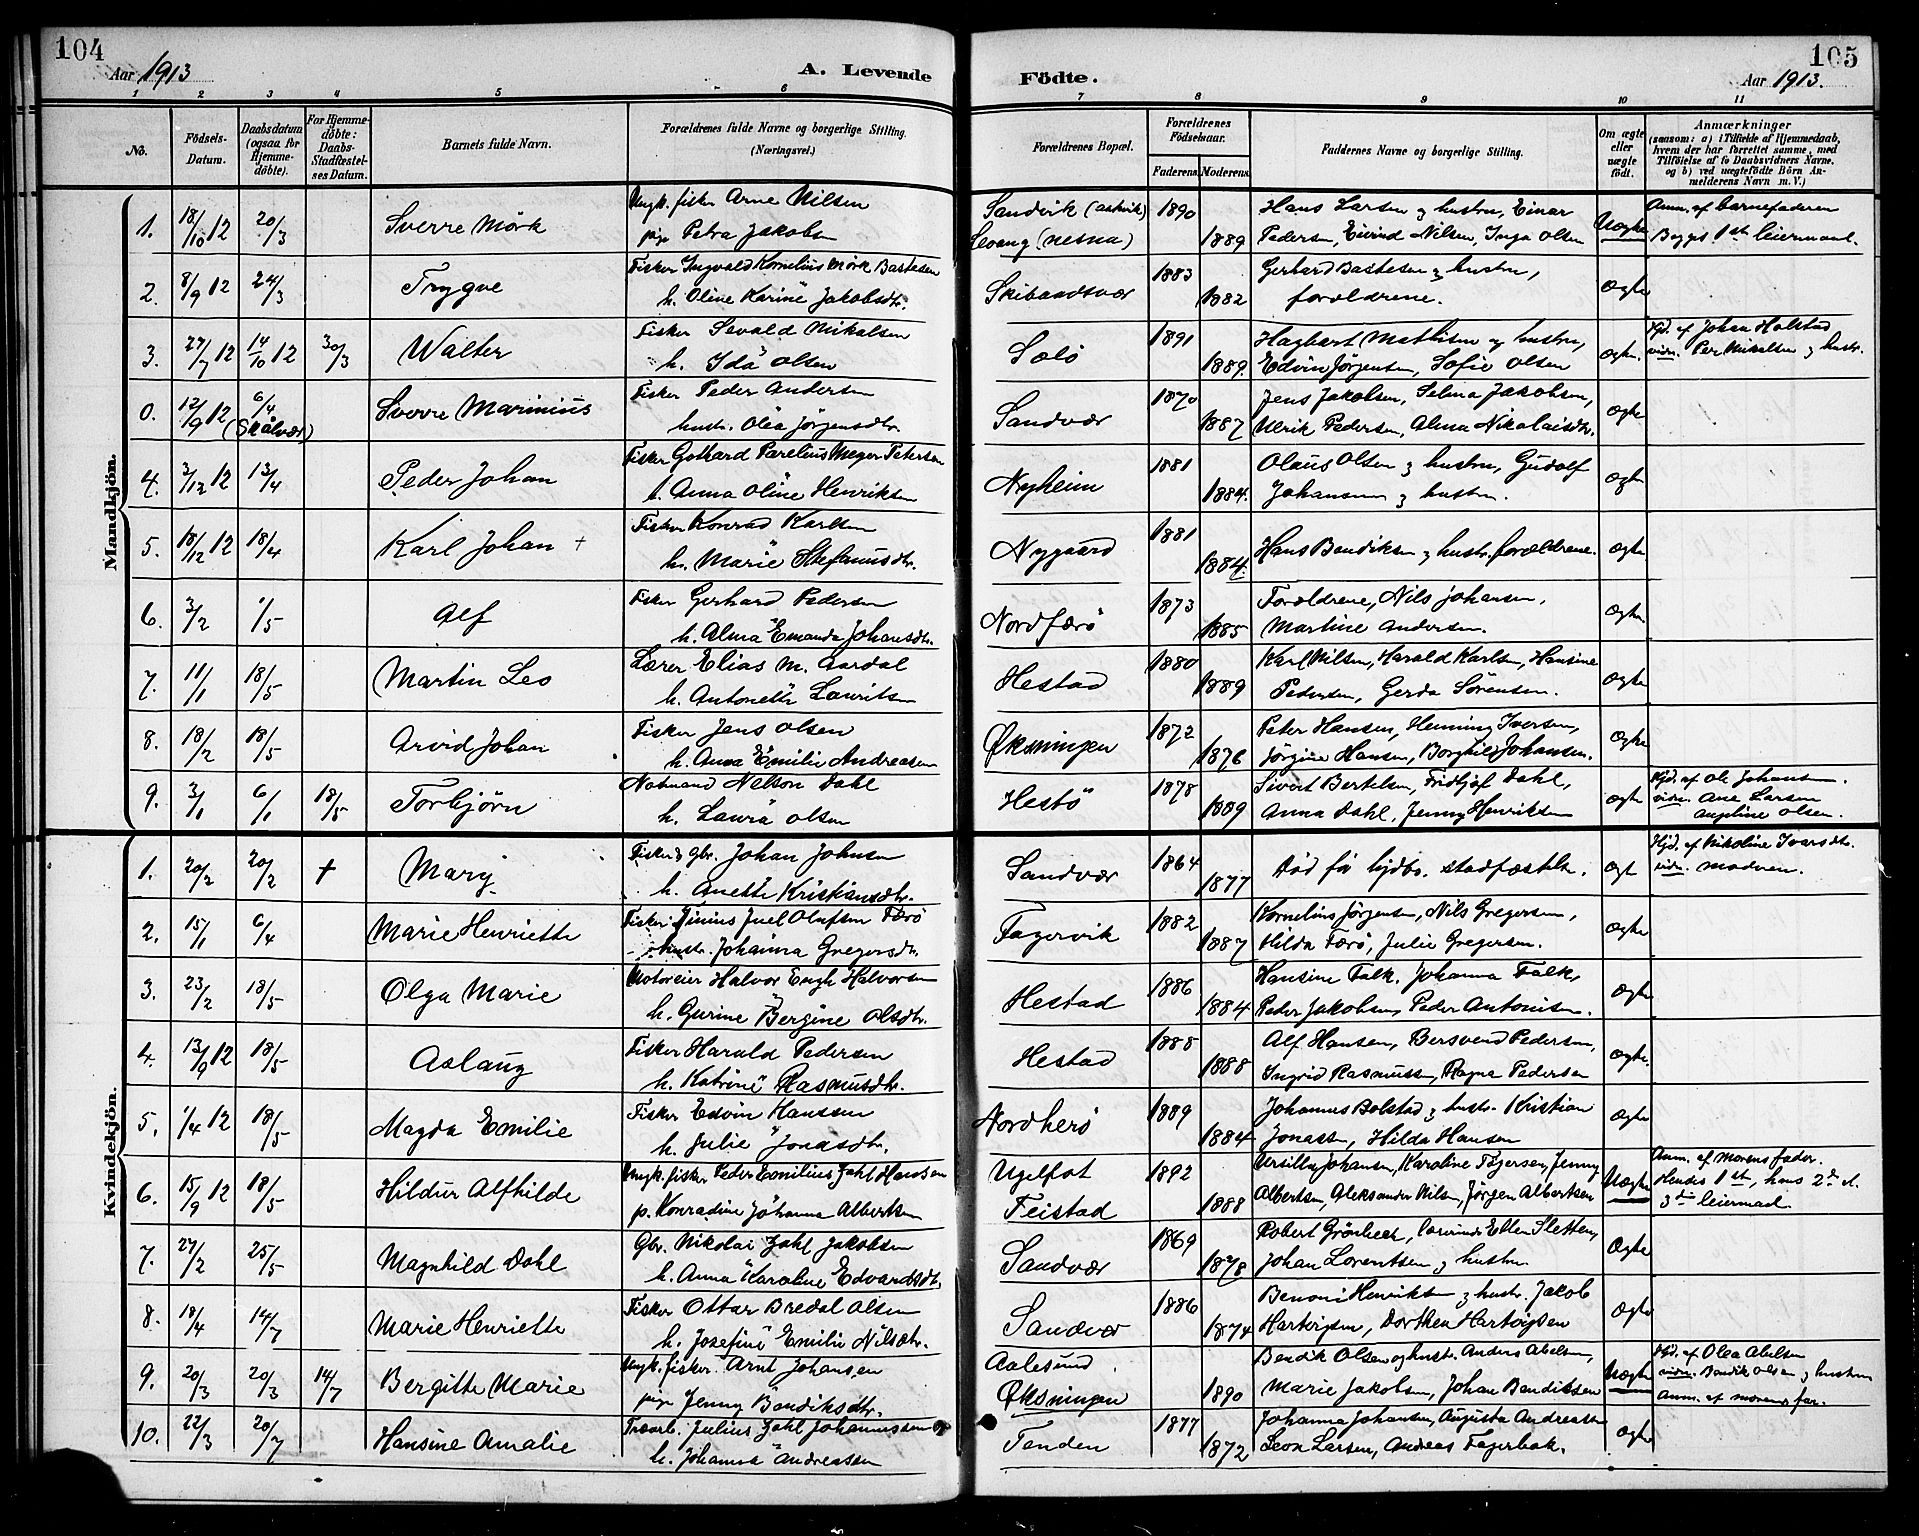 104
Aar 1913
A. Levende
Födte.
105
Aar 1913.
1 2 3 4 5 6 7 8 9 10 11
No.
Födsels-Datum.
Daabsdatum (ogsaa for Hjemme-döbte).
For Hjemme-döbte: Daabs-Stadfæstel-ses Datum.
Barnets fulde Navn.
Forældrenes fulde Navne og borgerlige Stilling. (Næringsvei.)
Forældrenes Bopæl.
Forældrenes Födselsaar.
Faderens. Moderens.
Faddernes Navne og borgerlige Stilling.
Om ægte eller uægte födt.
Anmærkninger
(saasom: a) i Tilfælde af Hjemmedaab, hvem der har forrettet samme, med Tilföielse af to Daabsvidners Navne. og b) ved uægtefödte Börn An-melderens Navn m. V.)
Mandkjön.
1. 18/10 12 20/3 Sverre Mörk Ungk. fisker Arne Nilsen Sandvik (Askvik) 1890 Hans Larsen & hustru, Einar Uægte Anm. af barnefaderen
pige Petra Jakobsen Levang (Nesna) 1889 Pedersen, Eivind Nilsen, Inga Olsen Begges 1ste leiermaal.
2. 8/9 12 24/3 Trygve Fisker Ingvald Kornelius Mörk Bastesen Skibaadsvær 1883 Gerhard Bastesen & hustru, ægte
h. Oline Karine Jakobsdtr. 1882 forældrene.
3. 27/7 12 14/10 12 30/3 Walter Fisker Sevald Mikalsen Solö 1891 Hagbart Mathisen og hustru, ægte. Hjd. af Johan Holstad
h. Ida Olsen 1889. Edvin Jörgensen, Sofie Olsen vidn. Per Mikalsen & hustr.
0. 12/9 12 6/4 (Skålvær) Sverre Marinius Fisker Peder Andersen Sandvær 1870 Jens Jakobsen, Selma Jakobsen, ægte
hustr. Olea Jörgensdtr. 1887 Ulrik Pedersen, Alma Nikolaisdtr.
4. 3/12 12 13/4 Peder Johan Fisker Gothard Parelius Meyer Petersen Nyheim 1881 Olaus Olsen & hustru, Gudolf ægte
h. Anna Oline Henriksen 1884. Johansen & hustru.
5. 18/12 12 18/4 Karl Johan + Fisker Konrad Karlsen Nygaard 1881
h. Marie Steffanusdtr. 1884. Hans Bendiksen & hustr. forældrene. ægte
6. 3/2 1/5 Alf Fisker Gerhard Pedersen Nordfærö 1873 Forældrene, Nils Johansen, ægte.
h. Alma Emanda Johansdtr. 1885 Martine Andersen.
7. 11/1 18/5 Martin Leo Lærer Elias M. Aardal Hestad 1880 Karl Nilsen, Harald Karlsen, Hansine ægte
h. Antonette Lauritsen 1889 Pedersen, Gerda Sörensen.
8. 18/2 18/5 Arvid Johan Fisker Jens Olsen Öksningen 1872 Peter Hansen, Henning Iversen, ægte
h. Anna Emilie Andreasen 1876 Jörgine Hansen, Borghild Johansen.
9. 3/1 6/1 18/5 Torbjörn Notmand Nelson Dahl Hestö 1878 Sivert Bertelsen, Fridtjof Dahl, ægte Hjd. af Ole Johansen.
h. Laura Olsen 1889 Anna Dahl, Jenny Henriksen vidn. Ane Larsen
Angeline Olsen.
Kvindekjön.
1. 20/2 20/2 + Mary Fisker & gbr. Johan Johnsen Sandvær 1864 Död för hjdb. stadfæstelse. ægte Hjd. af Nikoline Ivarsdtr.
h. Anette Kristiansdtr. 1877 vidn. modren.
2. 15/1 6/4 Marie Henriette Fisker Junius Juel Olufsen Færö Fagervik 1882 Kornelius Jörgensen, Nils Gregersen, ægte
hustr. Johanna Gregersdtr. 1887 Hilda Færö, Julie Gregersen.
3. 23/2 18/5 Olga Marie Motoreier Halvor Engh Halvorsen Hestad 1886 Hansine Falk, Johanna Falk, ægte
h. Gurine Bergine Olsdtr. 1884 Peter Jakobsen, Peder Antonisen.
4. 13/9 12 18/5 Aslaug Fisker Harald Pedersen Hestad 1885 Alf Hansen, Bersvend Pedersen, ægte.
h. Katrine Rasmusdtr. 1888 Ingrid Rasmussen, Ragna Pedersen
5. 1/4 12 18/5 Magda Emilie Fisker Edvin Hanssen Nordherö 1889 Johannes Bolstad & hustr. Kristian ægte
h. Julie Jonasdtr. 1884 Jonassen, Hilda Hansen
6. 15/9 12 18/5 Hildur Alfhilde Ungk. fisker Peder Emilius Zahl Hansen Ugelfot 1892 Ursilla Johansen, Karoline Fögersen, Jenny Uægte Anm. af morens fader.
p. Konradine Johanna Albertsen Feistad 1888 Albertsen, Aleksander Nilsen, Jörgen Albertsen Hendes 1ste, hans 2de el.
3die leiermaal
7. 27/2 25/5 Magnhild Dahl Gbr. Nikolai Zahl Jakobsen Sandvær 1869 Robert Grönbeck, Ellen Sletten, Ægte
h. Anna Karoline Edvardsdtr. 1878 Johan Lorentsen & hustru
8. 18/4 14/7 Marie Henriette Fisker Ottar Bredal Olsen Sandvær 1886 Benoni Henriksen & hustr. Jakob Ægte
h. Josefine Emilie Nilsdtr. 1874 Hartvigsen, Dorthea Hartvigsen
9. 20/3 20/3 14/7 Bergitte Marie Ungk. fisker Arnt Johansen Aalesund Bendik Olsen og hustr. Anders Abelsen, Uægte Hjd. af Olea Abelsen
pige Jenny Bendiksdtr. Öksningen 1890 Marie Jakobsen, Johan Bendiksen vidn. Bendik Olsen & hustru
Anm. af morens far.
10. 22/3 20/7 Hansine Amalie Træarb. Julius Zahl Johannessen og Tenden 1877 Johanna Johansen, Augusta Andreassen ægte
h. Johanna Andreassen 1872 Leon Larsen, Andreas Fagerbak.